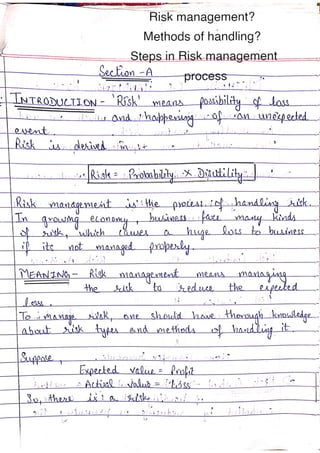 Risk management?
Methods of handling?
Steps in Risk management
Section - A
process
INTRODUCTION - 'Risk' means possibility of loss
and happening of an unexpected
event.
Risk is derived in
Risk = Probability × Disutility
Risk management is the process of handling risk.
In growing economy, business face many kinds
of risk, which causes a huge loss to business
if its not managed properly.
MEANING - Risk management means managing
the risk to reduce the expected
loss.
To manage risk, one should have thorough knowledge
about risk types and methods of handling it.
Suppose,
Expected value = Profit
Actual value = Loss
So, there is a risk